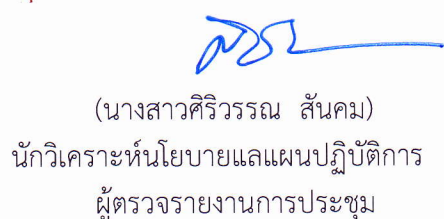 (นางสาวศิริวรรณ สันคม)
นักวิเคราะห์นโยบายแลแผนปฏิบัติการ
ผู้ตรวจรายงานการประชุม